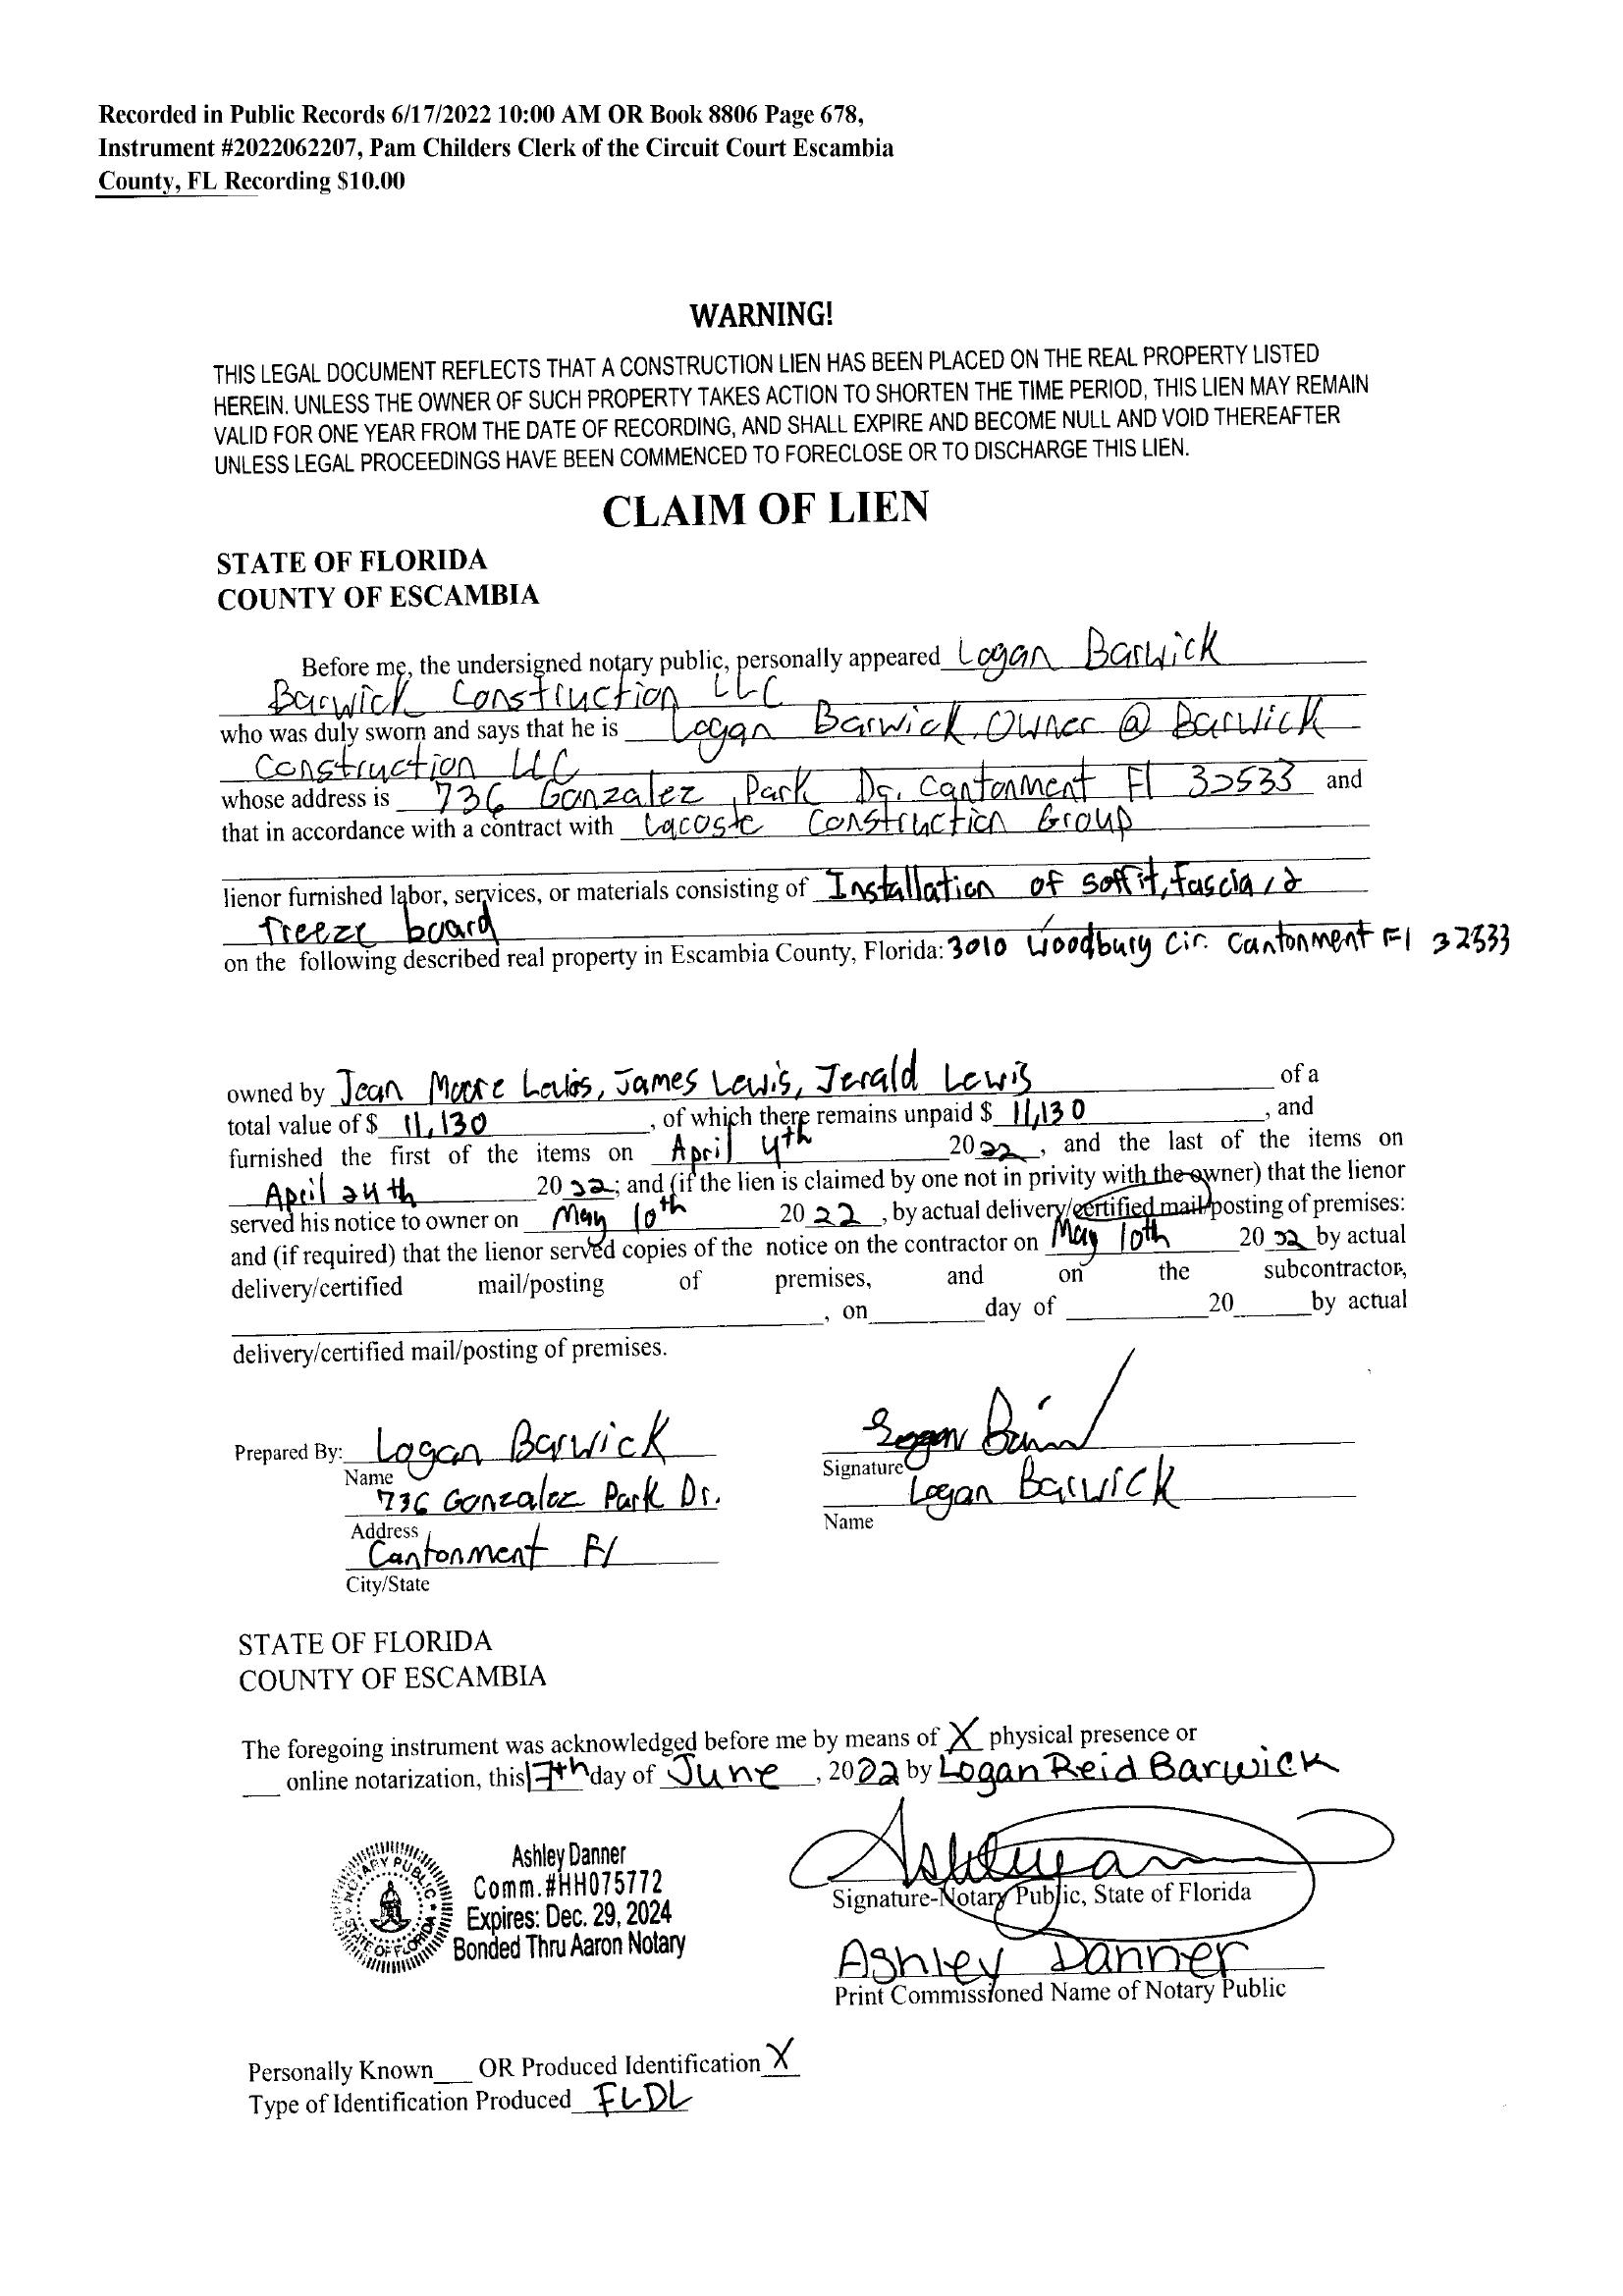 Recorded in Public Records 6/17/2022 10:00 AM OR Book 8806 Page 678,
Instrument #2022062207, Pam Childers Clerk of the Circuit Court Escambia
County, FL Recording $10.00
WARNING!
THIS LEGAL DOCUMENT REFLECTS THAT A CONSTRUCTION LIEN HAS BEEN PLACED ON THE REAL PROPERTY LISTED
HEREIN. UNLESS THE OWNER OF SUCH PROPERTY TAKES ACTION TO SHORTEN THE TIME PERIOD, THIS LIEN MAY REMAIN
VALID FOR ONE YEAR FROM THE DATE OF RECORDING, AND SHALL EXPIRE AND BECOME NULL AND VOID THEREAFTER
UNLESS LEGAL PROCEEDINGS HAVE BEEN COMMENCED TO FORECLOSE OR TO DISCHARGE THIS LIEN.
CLAIM OF LIEN
STATE OF FLORIDA
COUNTY OF ESCAMBIA
Before me, the undersigned notary public, personally appeared Logan Barwick
Barwick Construction LLC
who was duly sworn and says that he is Logan Barwick, Owner @ Barwick
Construction LLC
whose address is 736 Gonzalez Park Dr. Cantonment Fl 32533 and
that in accordance with a contract with Lacoste Construction Group
lienor furnished labor, services, or materials consisting of Installation of soffit, fascia, &
freeze board
on the following described real property in Escambia County, Florida: 3010 Woodbury Cir. Cantonment Fl 32533
owned by Jean Moore Lewis, James Lewis, Jerald Lewis of a
total value of $ 11,130, of which there remains unpaid $ 11,130, and
furnished the first of the items on April 4th 2022, and the last of the items on
April 24th 2022; and (if the lien is claimed by one not in privity with the owner) that the lienor
served his notice to owner on May 10th 2022, by actual delivery/certified mail/posting of premises:
and (if required) that the lienor served copies of the notice on the contractor on May 10th 2022 by actual
delivery/certified mail/posting of premises, and on the subcontractor,
, on day of 20 by actual
delivery/certified mail/posting of premises.
Prepared By: Logan Barwick
Name
736 Gonzalez Park Dr.
Address
Cantonment Fl
City/State
Logan
Signature
Logan Barwick
Name
STATE OF FLORIDA
COUNTY OF ESCAMBIA
The foregoing instrument was acknowledged before me by means of X physical presence or
online notarization, this 17th day of June, 2022 by Logan Reid Barwick
NOTARY PUBLIC
STATE OF FLORIDA
Ashley Danner
Comm.#HH075772
Expires: Dec. 29, 2024
Bonded Thru Aaron Notary
Signature-Notary Public, State of Florida
Ashley Danner
Print Commissioned Name of Notary Public
Personally Known OR Produced Identification X
Type of Identification Produced FLDL